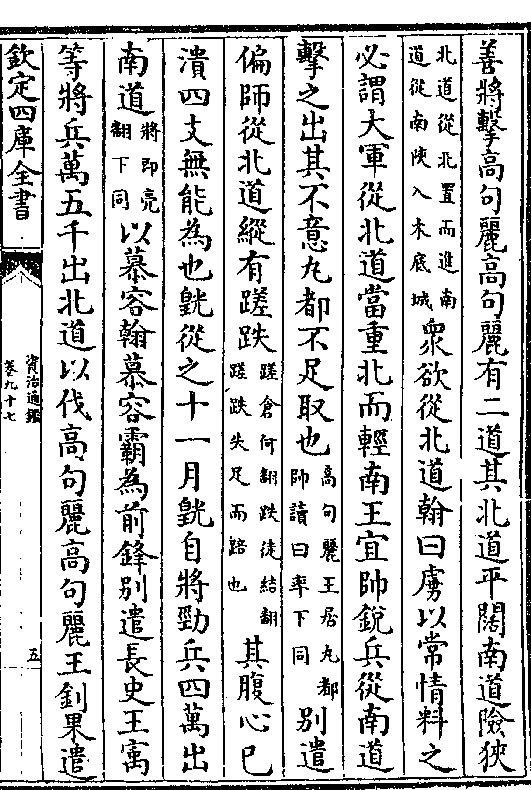 善將擊高句麗高句麗有二道其北道平闊南道險狹
北道從北置而進南道從南陜入木底城衆欲從北道翰曰虜以常情料之
必謂大軍從北道當重北而輕南王宜帥銳兵從南道
擊之出其不意丸都不足取也高句麗王居丸都帥讀曰率下同別遣
偏師從北道縱有蹉跌蹉倉何翻跌徒結翻蹉跌失足而踣也其腹心已
潰四支無能為也皝從之十一月皝自將勁兵四萬出
南道將即亮翻下同以慕容翰慕容霸為前鋒別遣長史王寓
等將兵萬五千出北道以伐高句麗高句麗王釗果遣
欽定四庫全書
資治通鑑
卷九十七
五